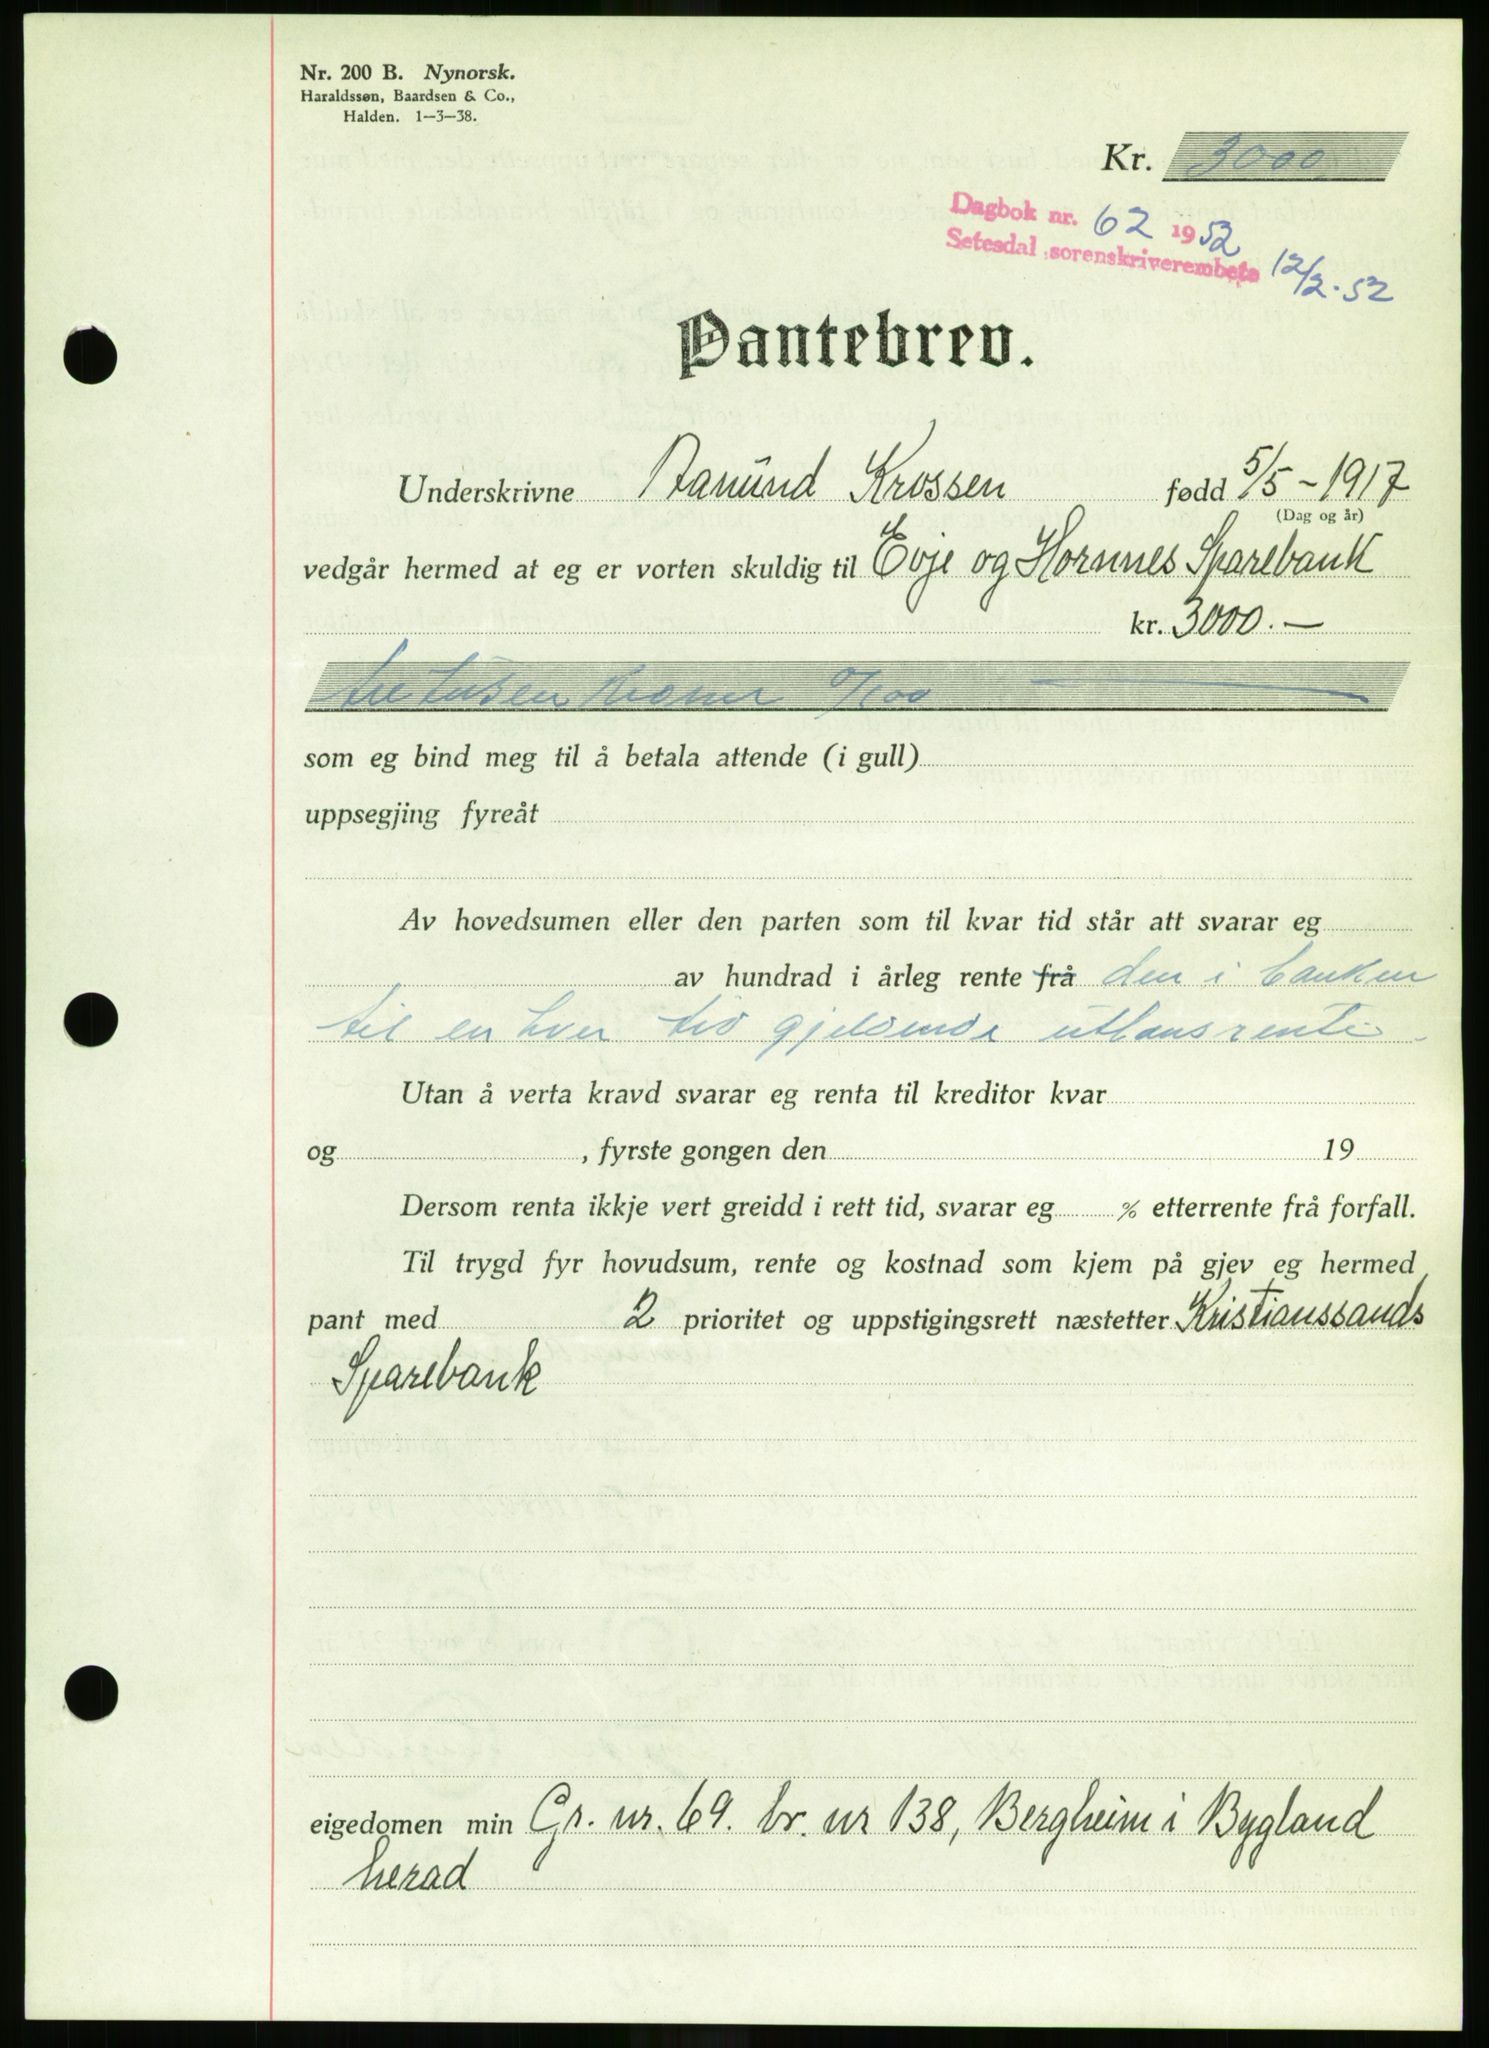 Nr. 200 B. Nynorsk.
Haraldssøn, Baardsen & Co.,
Halden. 1—3—38.
Kr. 3000
Dagbok nr. 62 1952
Setesdal sorenskriverembete 12/2-52
Pantebrev.
Underskrivne Aamund Krossen fødd 5/5-1917
(Dag og år)
vedgår hermed at eg er vorten skuldig til Evje og Hornnes Sparebank
kr. 3000.—
tretusen kroner 0/100
som eg bind meg til å betala attende (i gull)
uppsegjing fyreåt
Av hovedsumen eller den parten som til kvar tid står att svarar eg
av hundrad i årleg rente frå den i banken
til en hver tid gjeldende utlansrente.
Utan å verta kravd svarar eg renta til kreditor kvar
og , fyrste gongen den 19
Dersom renta ikkje vert greidd i rett tid, svarar eg % etterrente frå forfall.
Til trygd fyr hovudsum, rente og kostnad som kjem på gjev eg hermed
pant med 2 prioritet og uppstigingsrett næstetter Kristianssands
Sparebank
eigedomen min Gr. nr. 69. br. nr 138, Bergheim i Bygland
herad